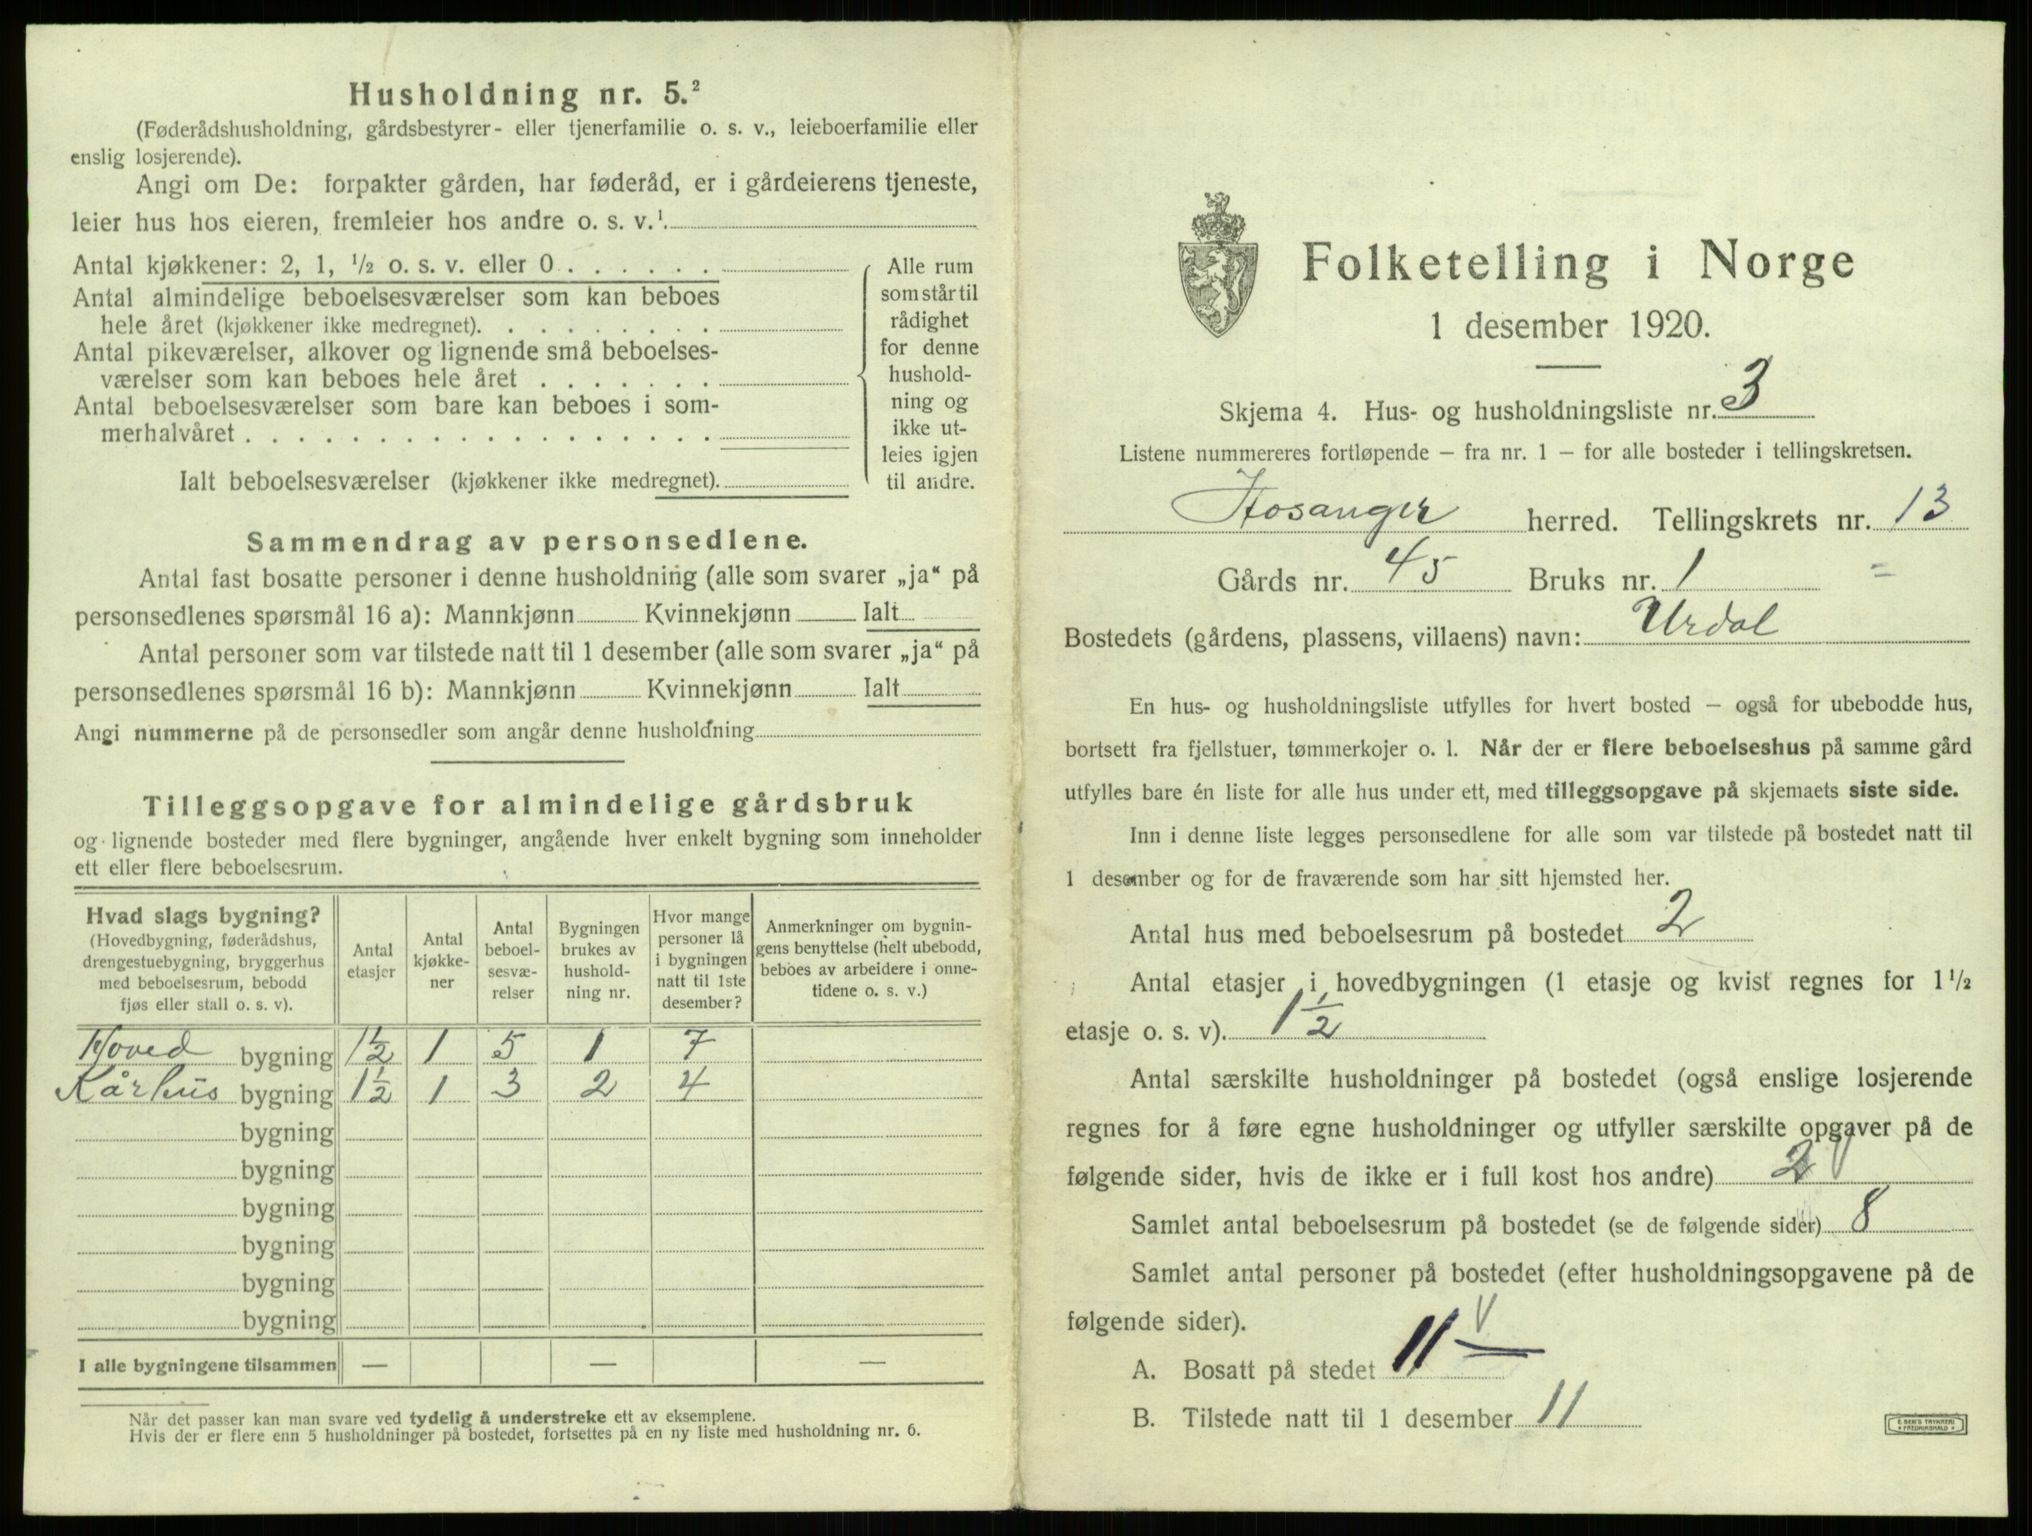 Husholdning nr. 5.²
(Føderådshusholdning, gårdsbestyrer- eller tjenerfamilie o. s. v., leieboerfamilie eller
enslig losjerende).
Angi om De: forpakter gården, har føderåd, er i gårdeierens tjeneste,
leier hus hos eieren, fremleier hos andre o. s. v.¹
Antal kjøkkener: 2, 1, ½ o. s. v. eller 0 . . . . . .
Antal almindelige beboelsesværelser som kan beboes
hele året (kjøkkener ikke medregnet). . . . . . . . .
Antal pikeværelser, alkover og lignende små beboelses-
værelser som kan beboes hele året . . . . . . .
Antal beboelsesværelser som bare kan beboes i som-
merhalvåret . . . . . . . . . . . . . . . . . .
Ialt beboelsesværelser (kjøkkener ikke medregnet).
Alle rum
som står til
rådighet
for denne
hushold-
ning og
ikke ut-
leies igjen
til andre.
Sammendrag av personsedlene.
Antal fast bosatte personer i denne husholdning (alle som svarer „ja“ på
personsedlenes spørsmål 16 a): Mannkjønn Kvinnekjønn Ialt
Antal personer som var tilstede natt til 1 desember (alle som svarer „ja“ på
personsedlenes spørsmål 16 b): Mannkjønn Kvinnekjønn Ialt
Angi nummerne på de personsedler som angår denne husholdning
Tilleggsopgave for almindelige gårdsbruk
og lignende bosteder med flere bygninger, angående hver enkelt bygning som inneholder
ett eller flere beboelsesrum.
Hvad slags bygning?
(Hovedbygning, føderådshus,
drengestuebygning, bryggerhus
med beboelsesrum, bebodd
fjøs eller stall o. s. v).
Antal
etasjer
Antal
kjøkke-
ner
Antal
beboel-
sesvæ-
relser
Bygningen
brukes av
hushold-
ning nr.
Hvor mange
personer lå
i bygningen
natt til 1ste
desember?
Anmerkninger om bygnin-
gens benyttelse (helt ubebodd,
beboes av arbeidere i onne-
tidene o. s. v.)
Hoved bygning 1½ 1 5 1 7
Kårhus bygning 1½ 1 3 2 4
bygning
bygning
bygning
bygning
bygning
bygning
I alle bygningene tilsammen — — —
Når det passer kan man svare ved tydelig å understreke ett av eksemplene.
Hvis der er flere enn 5 husholdninger på bostedet, fortsettes på en ny liste med husholdning nr. 6.
Folketelling i Norge
1 desember 1920.
Skjema 4. Hus- og husholdningsliste nr. 3
Listene nummereres fortløpende — fra nr. 1 — for alle bosteder i tellingskretsen.
Hosanger herred. Tellingskrets nr. 13
Gårds nr. 45 Bruks nr. 1 =
Bostedets (gårdens, plassens, villaens) navn: Urdal
En hus- og husholdningsliste utfylles for hvert bosted — også for ubebodde hus,
bortsett fra fjellstuer, tømmerkojer o. l. Når der er flere beboelseshus på samme gård
utfylles bare én liste for alle hus under ett, med tilleggsopgave på skjemaets siste side.
Inn i denne liste legges personsedlene for alle som var tilstede på bostedet natt til
1 desember og for de fraværende som har sitt hjemsted her.
Antal hus med beboelsesrum på bostedet 2
Antal etasjer i hovedbygningen (1 etasje og kvist regnes for 1½
etasje o. s. v). 1½
Antal særskilte husholdninger på bostedet (også enslige losjerende
regnes for å føre egne husholdninger og utfyller særskilte opgaver på de
følgende sider, hvis de ikke er i full kost hos andre) 2 V
Samlet antal beboelsesrum på bostedet (se de følgende sider) 8
Samlet antal personer på bostedet (efter husholdningsopgavene på de
følgende sider).
A. Bosatt på stedet 11 V
B. Tilstede natt til 1 desember 11